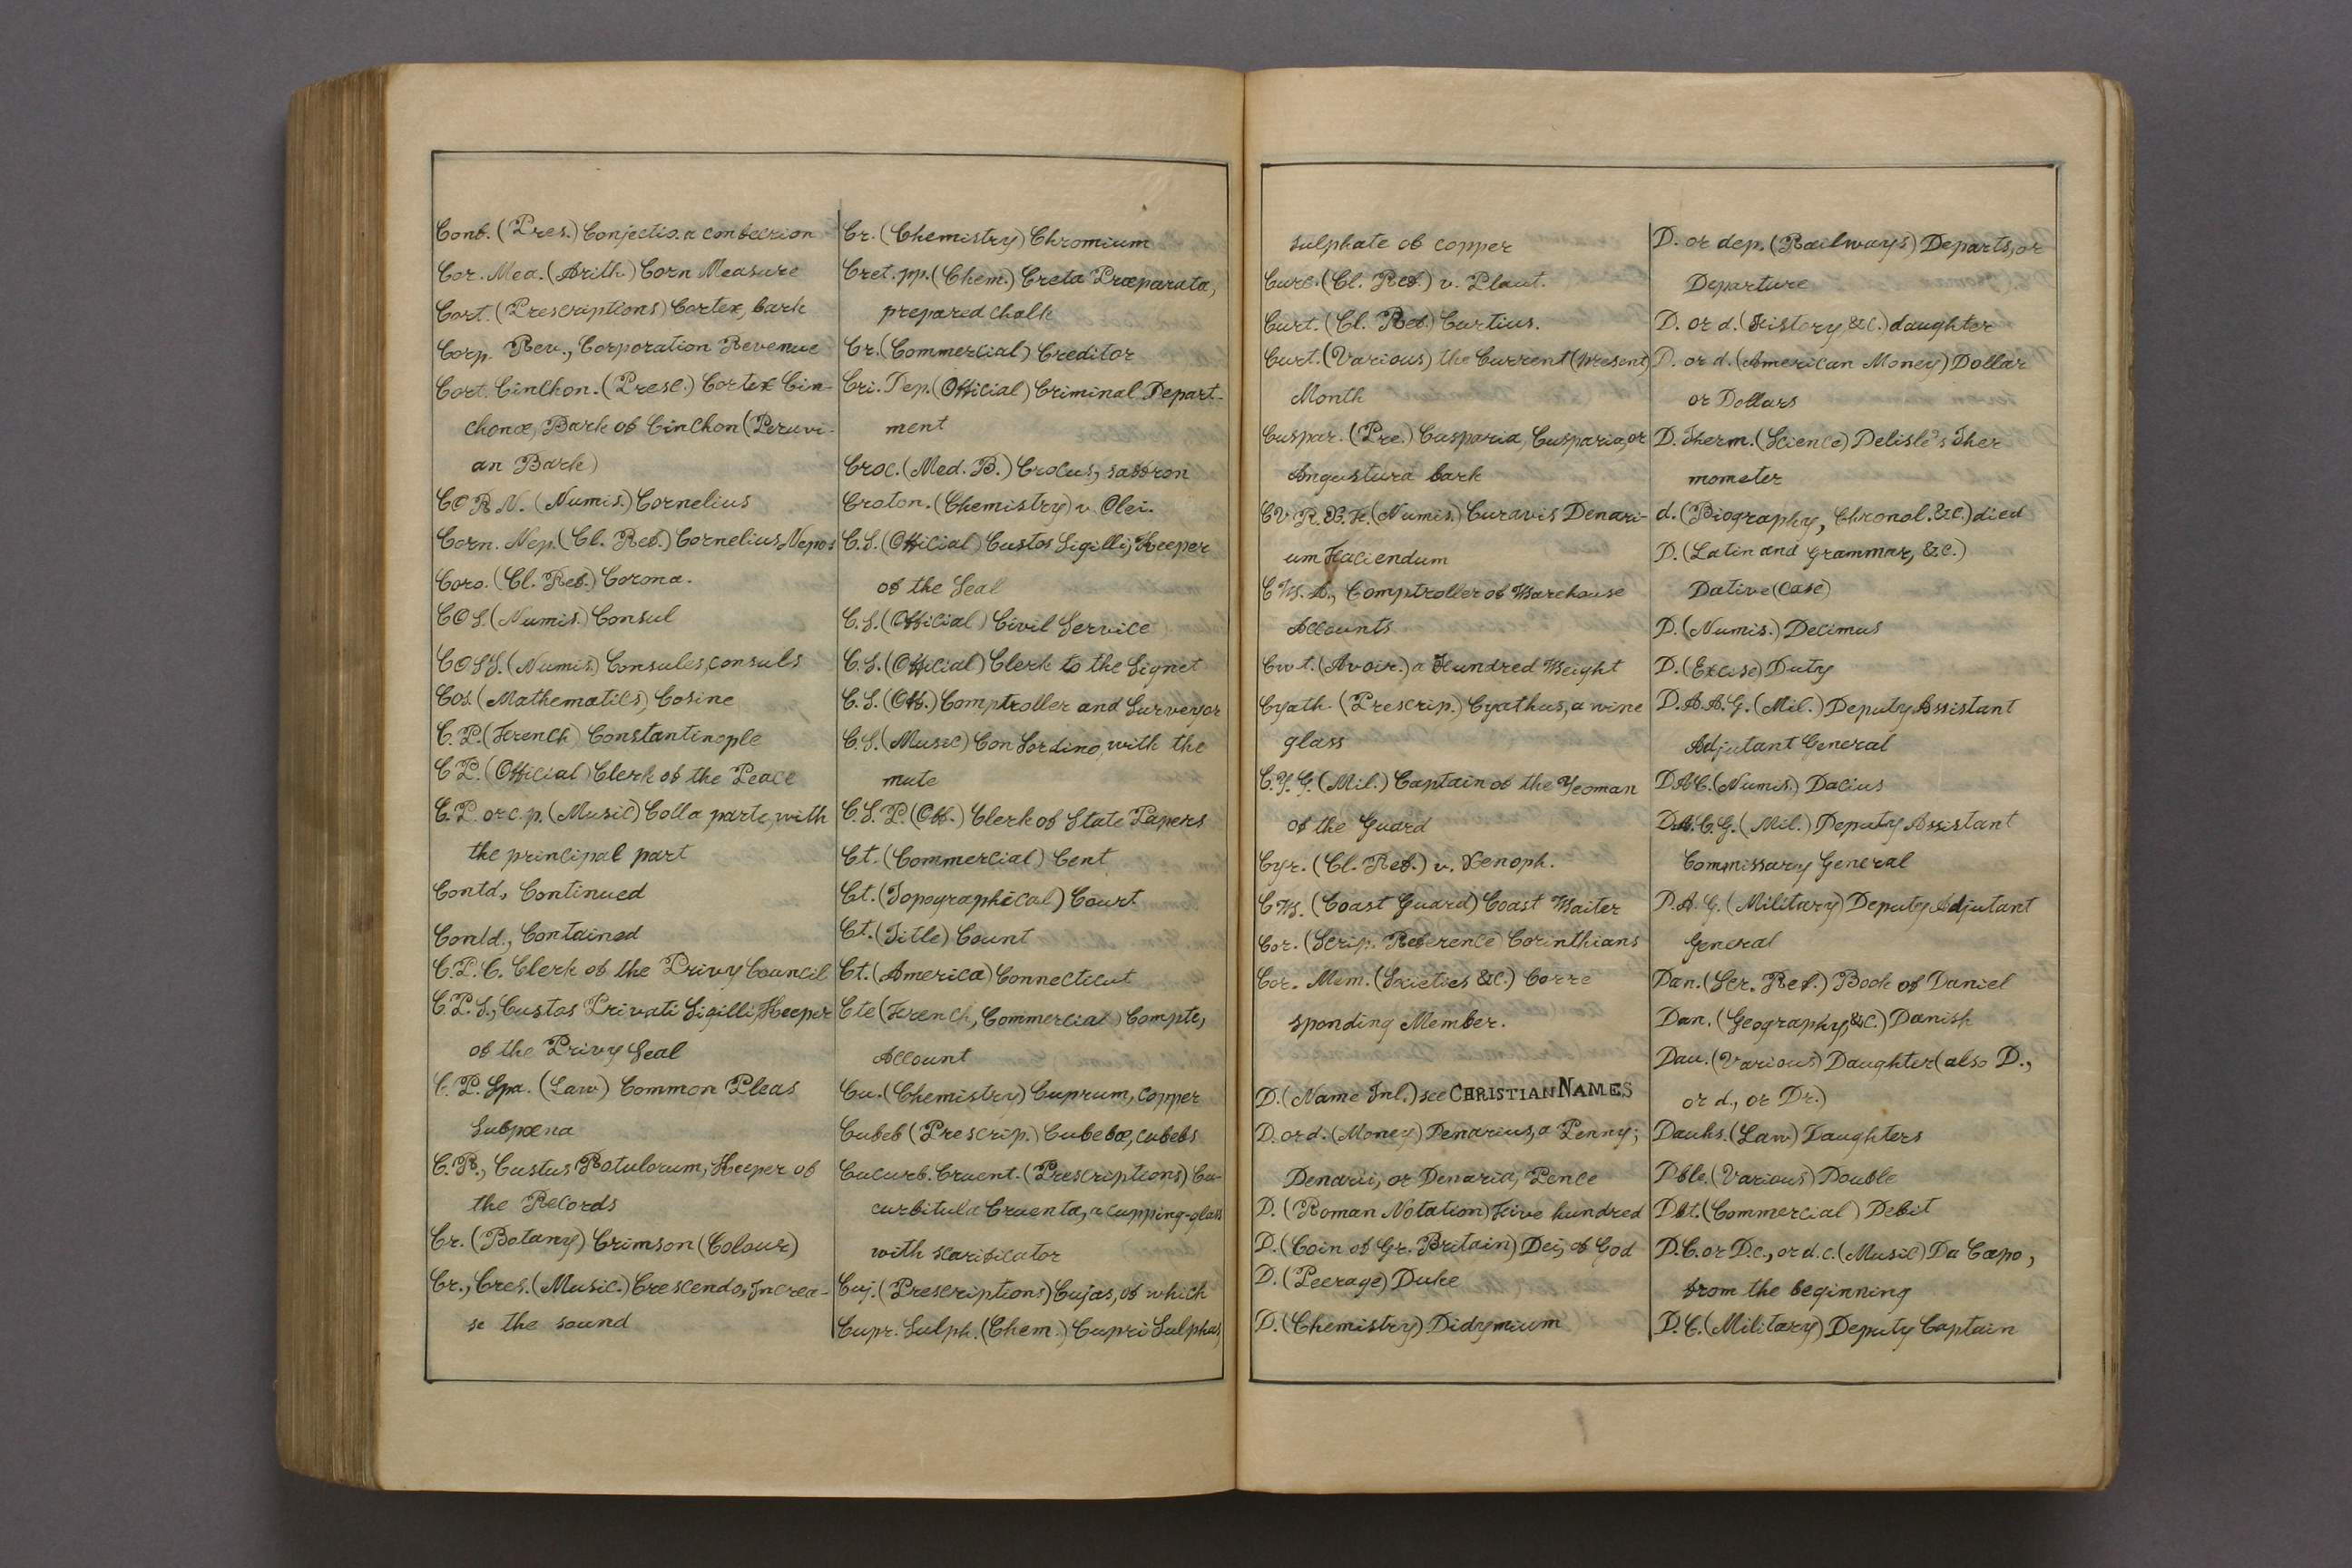 Conf. (Pres.) Confectio. a confection
Cor. Mea. (Arith.) Corn Measure
Cort. (Prescriptions) Cortex, bark
Corp. Rev., Corporation Revenue
Cort. Cinchon. (Presc.) Cortex Cin-
chonæ, Bark of Cinchon (Peruvi-
an Bark)
CORN. (Numis.) Cornelius
Corn. Nep. (Cl. Ref.) Cornelius Nepos
Coro. (Cl. Ref.) Corona.
COS. (Numis.) Consul
COSS. (Numis.) Consules, consuls
Cos. (Mathematics) Cosine
C.P. (French) Constantinople
C P. (Official) Clerk of the Peace
C.P. or c.p. (Music) Colla parte, with
the principal part
Contd., Continued
Contd., Contained
C.P.C. Clerk of the Privy Council
C.P.S., Custos Privati Sigilli, Keeper
of the Privy Seal
C.P. Spa. (Law) Common Pleas
Subpœna
C.R., Custus Rotulorum, Keeper of
the Records
Cr. (Botany) Crimson (Colour)
Cr., Cres. (Music.) Crescendo, Increa-
se the sound
Cr. (Chemistry) Chromium
Cret. pp. (Chem.) Creta Præparata,
prepared chalk
Cr. (Commercial) Creditor
Cri. Dep. (Official) Criminal Depart-
ment
Croc. (Med. B.) Crocus, saffron
Croton. (Chemistry) v. Olei.
C.S. (Official) Custos Sigilli, Keeper
of the Seal
C.S. (Official) Civil Service
C.S. (Official) Clerk to the Signet
C.S. (Off.) Comptroller and Surveyor
C.S. (Music) Con Sordino, with the
mute
C.S.P. (Off.) Clerk of State Papers
Ct. (Commercial) Cent
Ct. (Topographical) Court
Ct. (Title) Count
Ct. (America) Connecticut
Cte (French, Commercial) Compte,
Account
Cu. (Chemistry) Cuprum, copper
Cubeb (Prescrip.) Cubebæ, cubebs
Cucurb. Cruent. (Prescriptions) Cu-
curbitula Cruenta, a cupping-glass
with scarificator
Cuj. (Prescriptions) Cujas, of which
Cupr. Sulph. (Chem.) Cupri Sulphas,
sulphate of copper
Curc. (Cl. Ref.) v. Plaut.
Curt. (Cl. Ref.) Curtius.
Curt. (Various) the Current (present)
Month
Cuspar. (Pre.) Casparia, Cusparia, or
Angustura bark
CV R. D. F. (Numis.) Curavis Denari-
um Faciendum
C W. A., Comptroller of Warehouse
Accounts
Cwt. (Avoir.) a Hundred Weight
Cyath. (Prescrip.) Cyathus, a wine
glass
C.Y.G. (Mil.) Captain of the Yeoman
of the Guard
Cyr. (Cl. Ref.) v. Xenoph.
C W. (Coast Guard) Coast Waiter
Cor. (Scrip. Reference) Corinthians
Cor. Mem. (Societies &c.) Corre
sponding Member.
D. (Name Inl.) see CHRISTIAN NAMES
D. or d. (Money) Denarius, a Penny;
Denarii, or Denaria, Pence
D. (Roman Notation) Five hundred
D. (Coin of Gr. Britain) Dei, of God
D. (Peerage) Duke
D. (Chemistry) Didymium
D. or dep. (Railways) Departs, or
Departure
D. or d. (History, &c.) daughter
D. or d. (American Money) Dollar
or Dollars
D. Therm. (Science) Delisle's Ther
mometer
d. (Biography, Chronol. &c.) died
D. (Latin and Grammar, &c.)
Dative (case)
D. (Numis.) Decimus
D. (Excise) Duty
D.A.A.G. (Mil.) Deputy Assistant
Adjutant General
DAC. (Numis.) Dacius
D.A.C.G. (Mil.) Deputy Assistant
Commissary General
D.A.G. (Military) Deputy Adjutant
General
Dan. (Scr. Ref.) Book of Daniel
Dan. (Geography, &c.) Danish
Dau. (Various) Daughter (also D.,
or d., or Dr.)
Dauhs. (Law) Daughters
Dble. (Various) Double
Dbt. (Commercial) Debit
D.C. or D.c., or d.c. (Music) Da Capo,
from the beginning
D.C. (Military) Deputy Captain